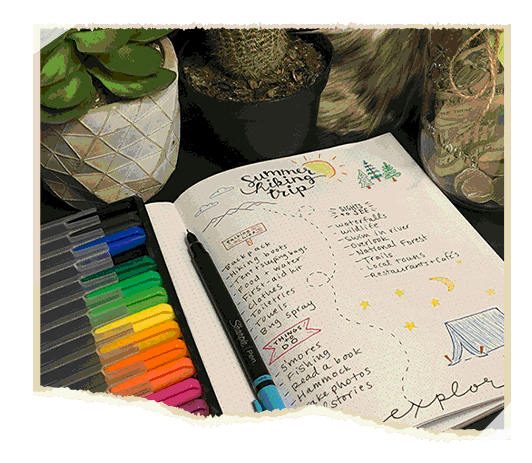 Summer
hiking
trip
PACKING
LIST
- Backpack
- Hiking boots
- Tent + slumpy bags
- Food + water
- First-aid kit
- Clothes
- Toiletries
- Towels
- Bug spray
THINGS
TO
DO
- S'mores
- Fishing
- Read a book
- Hammock
- Take photos
stories
SIGHTS
TO SEE
- waterfalls
- wildlife
- Swim in river
- Overlook
- National Forest
- Trails
- Local towns
- Restaurants + cafés
explor
Sharpie PEN